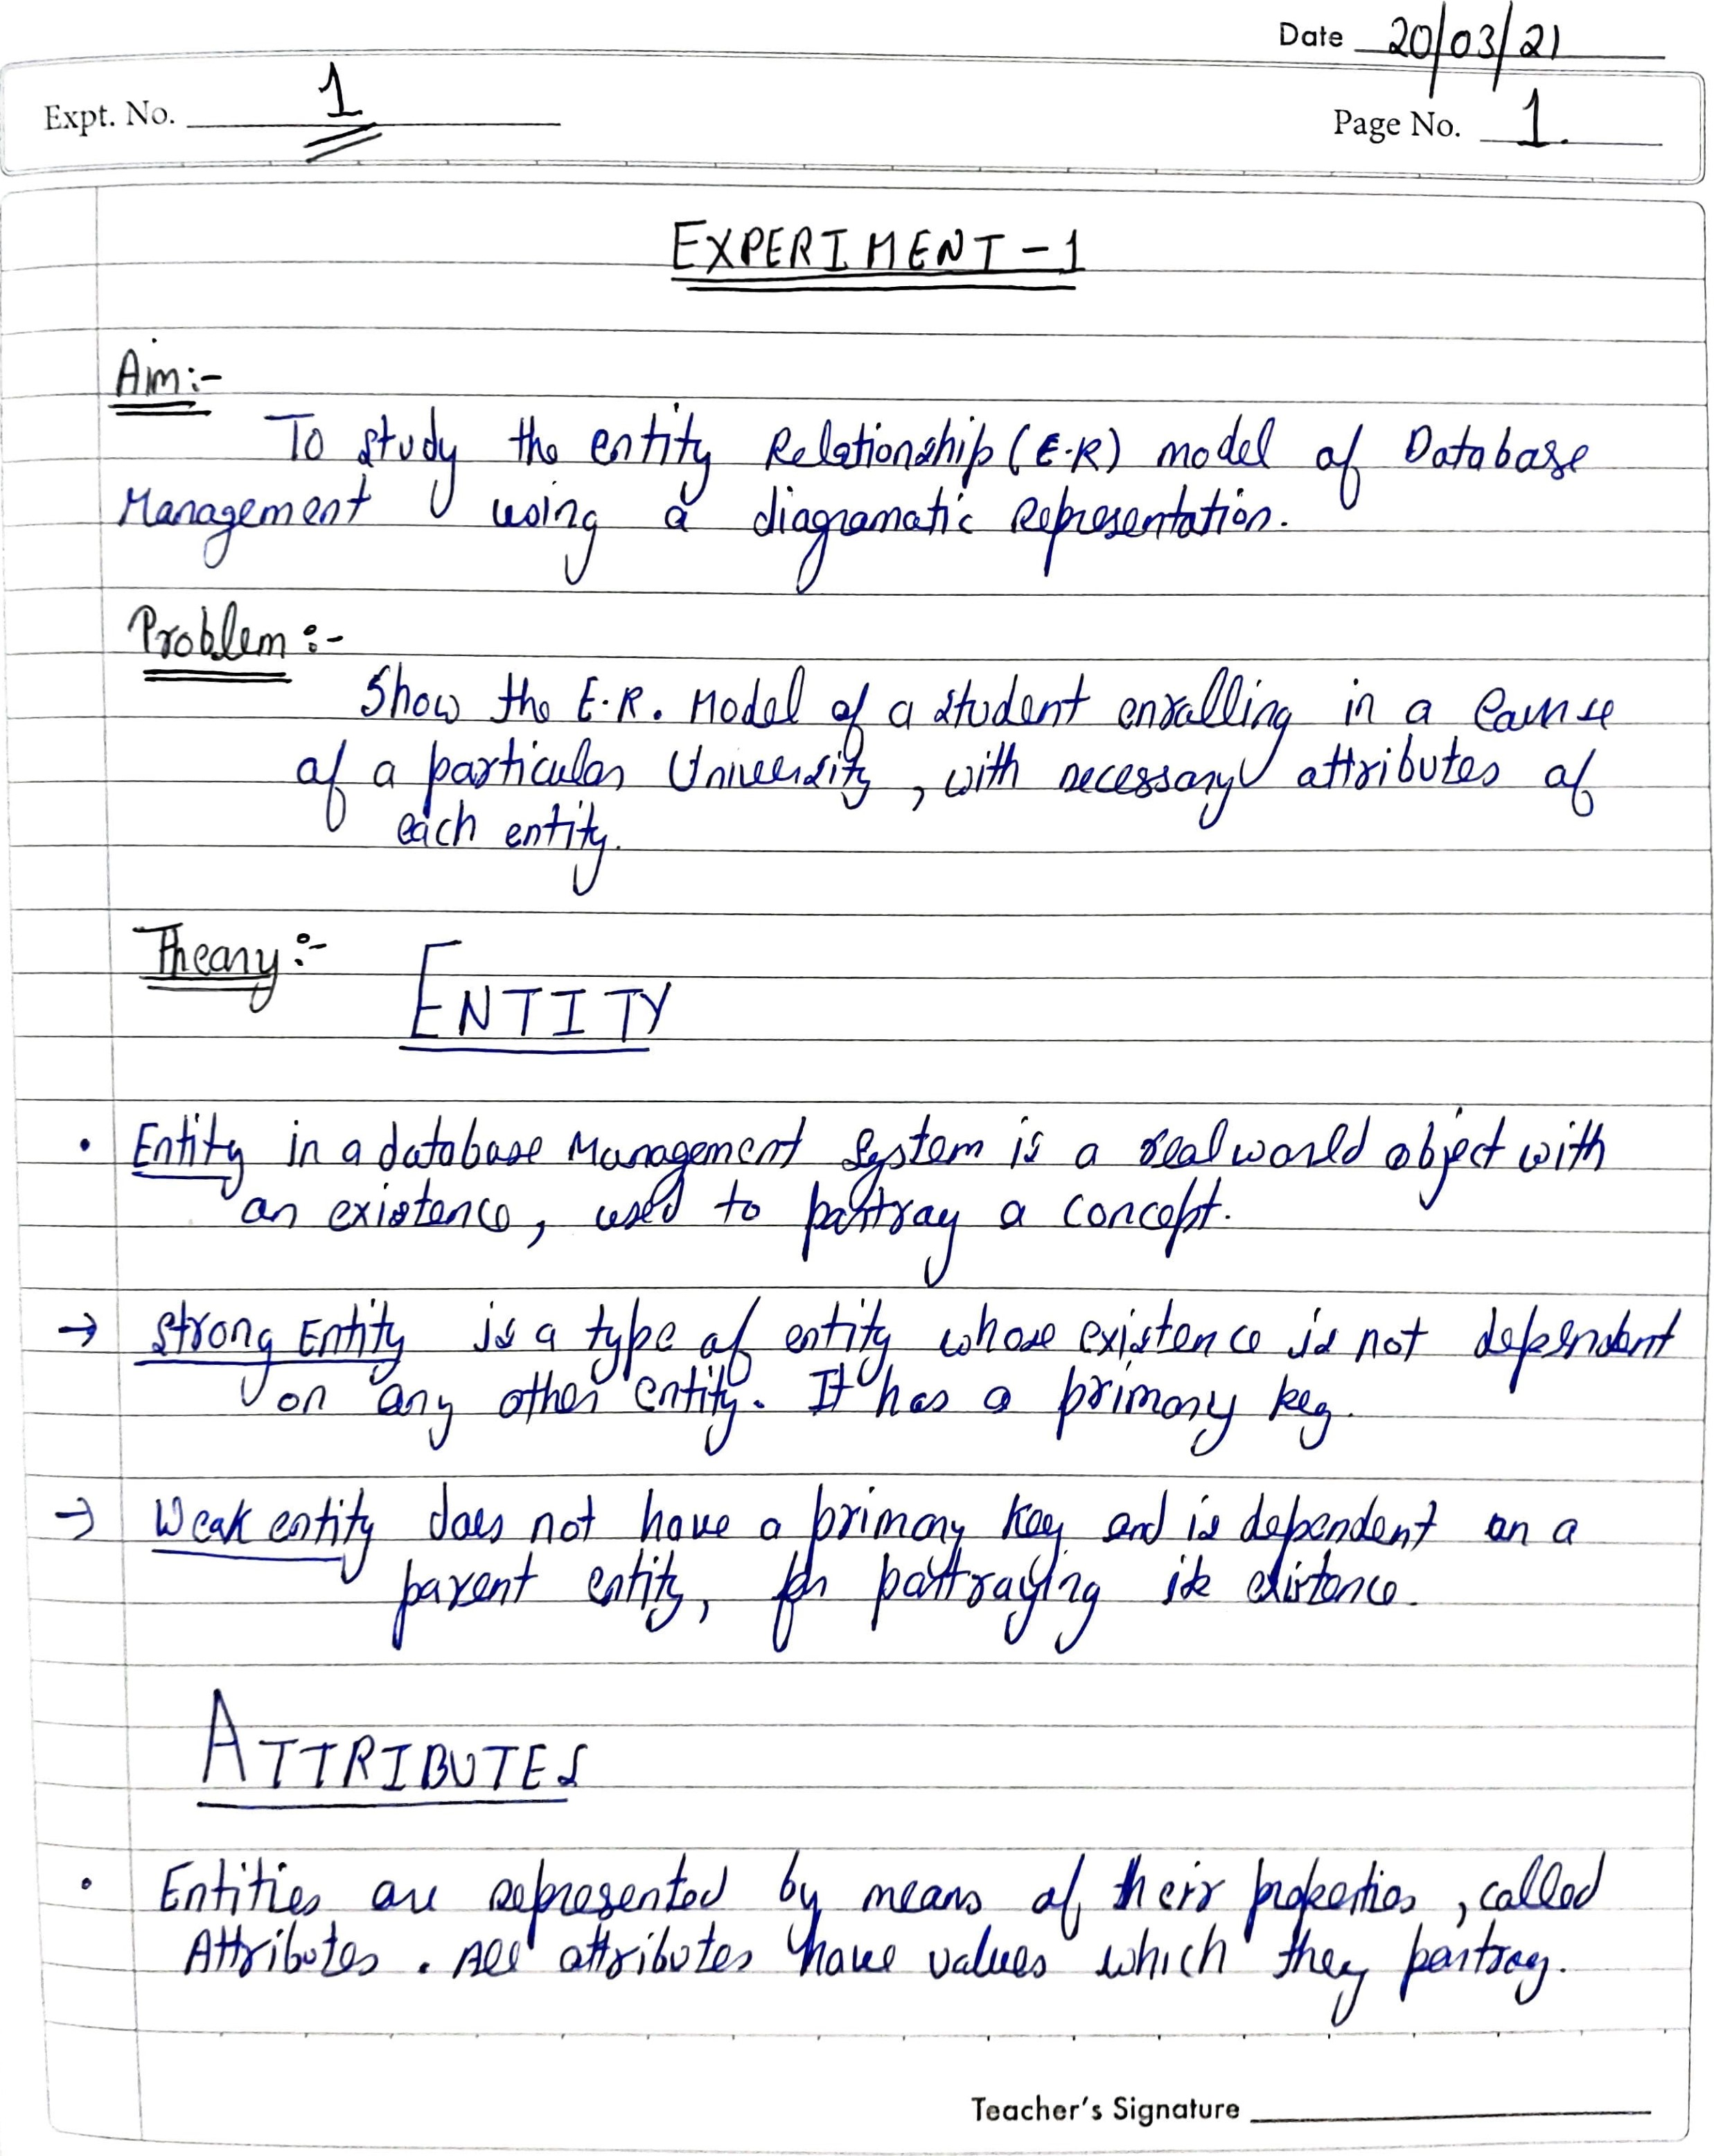 Date 20/03/21
Expt. No. 1
Page No. 1.
EXPERIMENT-1
Aim:-
To study the entity Relationship (E-R) model of Database
Management using a diagramatic Representation.
Problem:-
Show the E.R. Model of a student enrolling in a Course
of a particular University, with necessary attributes of
each entity.
Theory:-
ENTITY
• Entity in a database Management System is a real world object with
an existence, used to portray a concept.
→ Strong Entity is a type of entity whose existence is not dependent
on any other entity. It has a primary key.
→ Weak entity does not have a primary key and is dependent on a
parent entity, for portraying its existence.
ATTRIBUTES
• Entities are represented by means of their properties, called
Attributes. All attributes have values which they portray.
Teacher's Signature